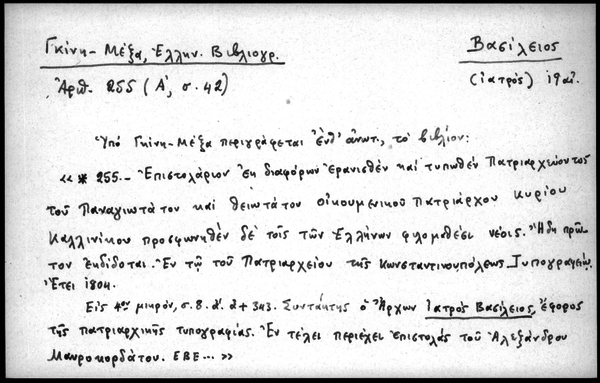 Γκίνη - Μέξα, Ἑλλην. Βιβλιογρ.
Βασίλειος
Ἀριθ. 255 (Α', σ. 42)
(ἰατρός) 19 αἰ.
Ὑπό Γκίνη-Μέξα περιγράφεται ἔνθ' ἀνωτ., τό βιβλίον:
«* 255.- Ἐπιστολάριον ἐκ διαφόρων ἐρανισθέν καί τυπωθέν Πατριαρχεύοντος
τοῦ Παναγιωτάτου καί θειωτάτου οἰκουμενικοῦ Πατριάρχου Κυρίου
Καλλινίκου προσφωνηθέν δέ τοῖς τῶν Ἑλλήνων φιλομαθέσι νέοις. Ἤδη πρῶ-
τον ἐκδίδοται. Ἐν τῷ τοῦ Πατριαρχείου τῆς Κωνσταντινουπόλεως Τυπογραφείῳ.
Ἔτει 1804.
Εἰς 4ον μικρόν, σ. 8. ἀ. ἀ + 343. Συντάκτης ὁ Ἄρχων Ἰατρός Βασίλειος, ἔφορος
τῆς πατριαρχικῆς τυπογραφίας. Ἐν τέλει περιέχει ἐπιστολάς τοῦ Ἀλεξάνδρου
Μαυροκορδάτου. ΕΒΕ... »